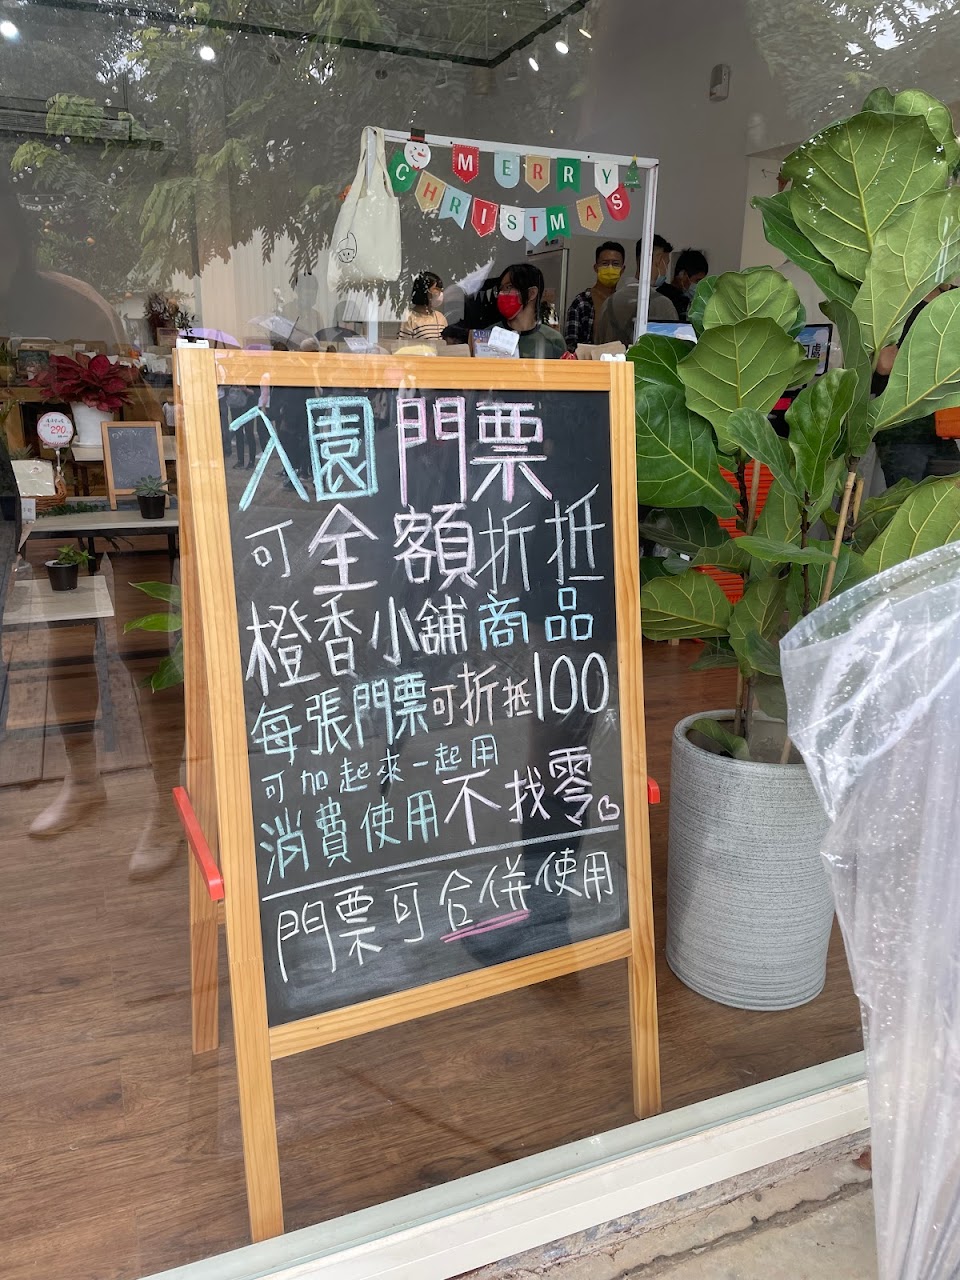 MERRY
CHRISTMAS
290
入園門票
可全額折抵
橙香小舖商品
每張門票可折抵100元
可加起來一起用
消費使用不找零
門票可合併使用